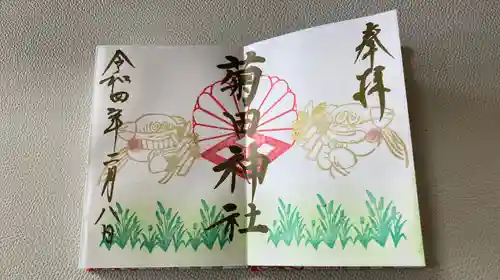 奉拝
菊田神社
令和四年二月八日